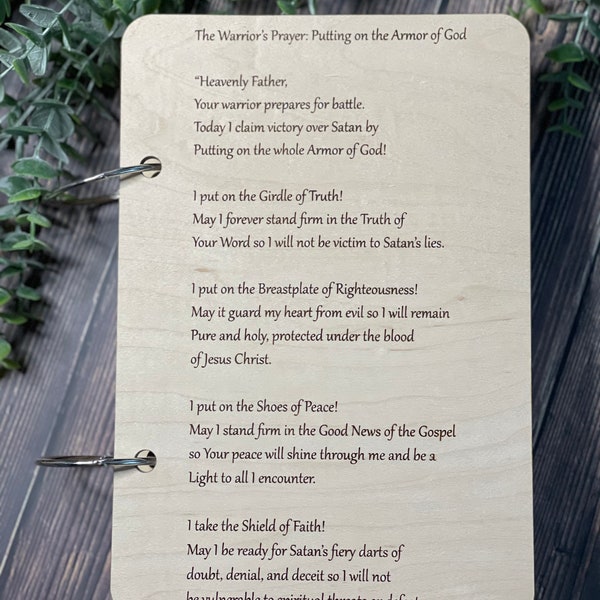 The Warrior's Prayer: Putting on the Armor of God
“Heavenly Father,
Your warrior prepares for battle.
Today I claim victory over Satan by
Putting on the whole Armor of God!
I put on the Girdle of Truth!
May I forever stand firm in the Truth of
Your Word so I will not be victim to Satan's lies.
I put on the Breastplate of Righteousness!
May it guard my heart from evil so I will remain
Pure and holy, protected under the blood
of Jesus Christ.
I put on the Shoes of Peace!
May I stand firm in the Good News of the Gospel
so Your peace will shine through me and be a
Light to all I encounter.
I take the Shield of Faith!
May I be ready for Satan's fiery darts of
doubt, denial, and deceit so I will not
be vulnerable to spiritual threats or